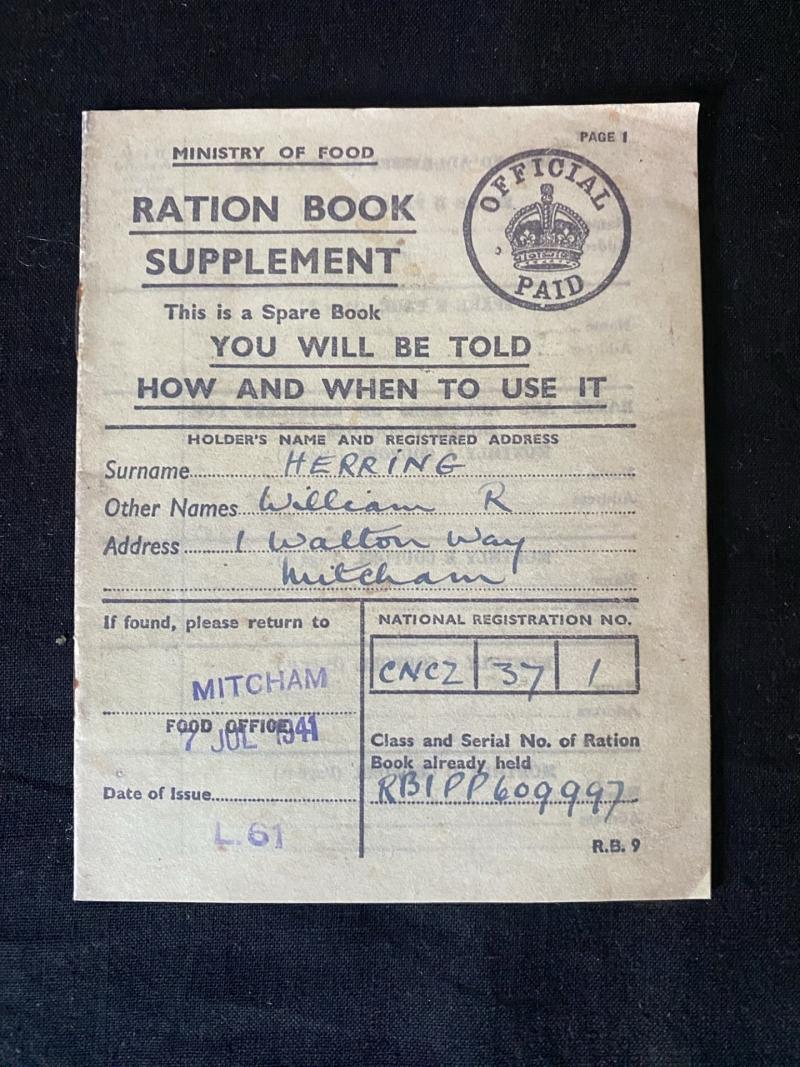 PAGE 1
MINISTRY OF FOOD
OFFICIAL
PAID
RATION BOOK
SUPPLEMENT
This is a Spare Book
YOU WILL BE TOLD
HOW AND WHEN TO USE IT
HOLDER'S NAME AND REGISTERED ADDRESS
Surname HERRING
Other Names William R
Address 1 Walton Way
Mitcham
If found, please return to
MITCHAM
FOOD OFFICE
7 JUL 1941
Date of Issue
L.61
NATIONAL REGISTRATION NO.
CNCZ 37 1
Class and Serial No. of Ration
Book already held
RB1PP609997
R.B. 9